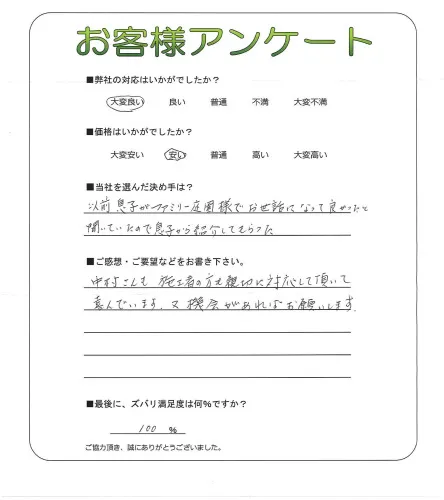 お客様アンケート
■弊社の対応はいかがでしたか?
大変良い 良い 普通 不満 大変不満
■価格はいかがでしたか?
大変安い 安い 普通 高い 大変高い
■当社を選んだ決め手は?
以前息子がファミリー庭園様でお世話になって良かったと
聞いていたので息子から紹介してもらった
■ご感想・ご要望などをお書き下さい。
中村さんも 施工者の方も親切に対応して頂いて
喜んでいます。又機会があればお願いします。
■最後に、ズバリ満足度は何%ですか?
100 %
ご協力頂き、誠にありがとうございました。